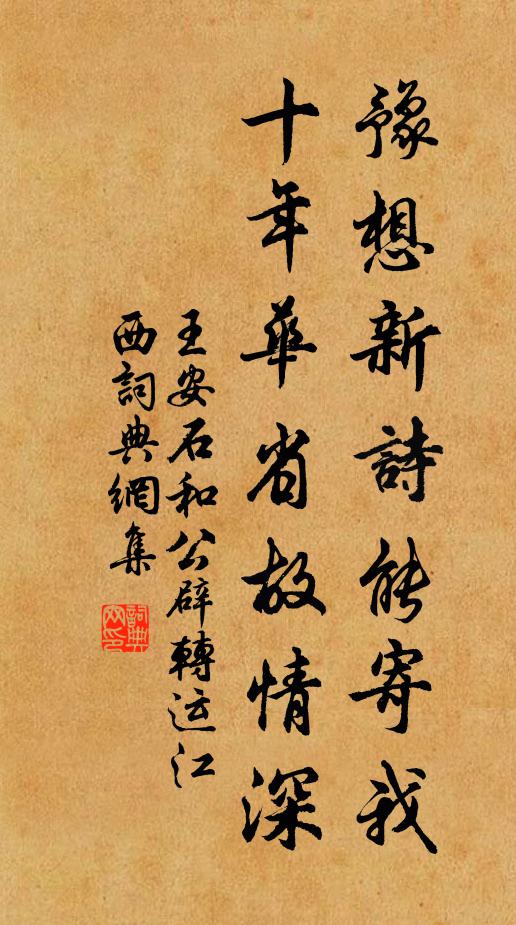 豫想新詩能寄我
十年華省故情深
王安石和公辟轉运江
西詞典網集
詞典
网印